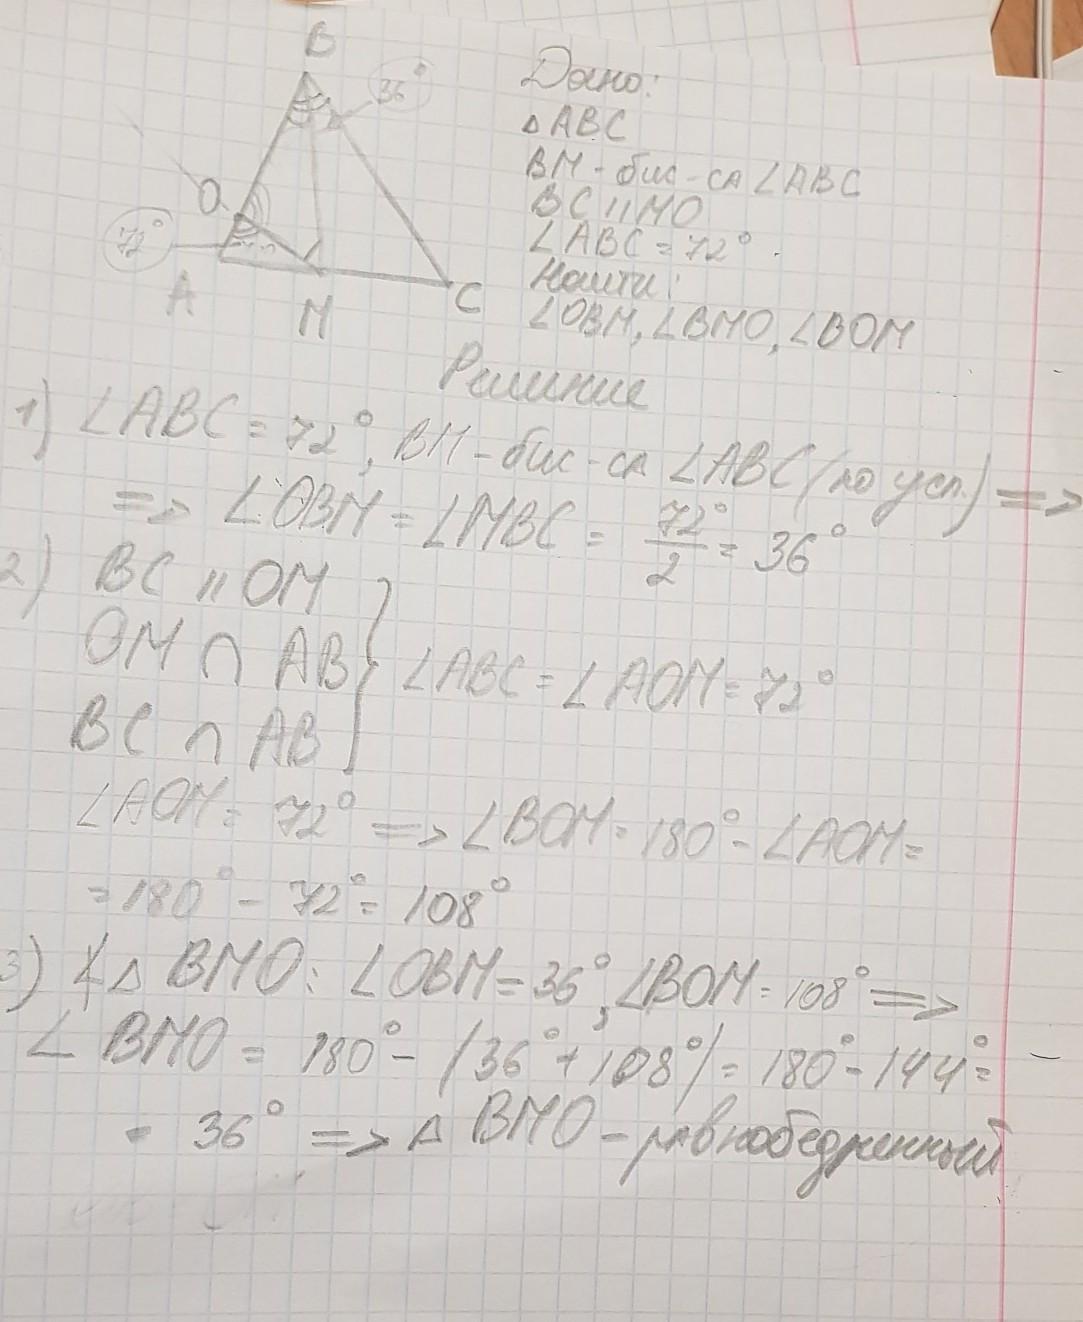 B
36°
O
72°
A
M
C
Дано:
△ABC
BM - бис-са ∠ABC
BC || MO
∠ABC = 72°.
Найти:
∠OBM, ∠BMO, ∠BOM
Решение
1) ∠ABC = 72°, BM - бис-са ∠ABC (по усл.) =>
=> ∠OBM = ∠MBC = 72°/2 = 36°
2) BC || OM
OM ∩ AB } ∠ABC = ∠AOM = 72°
BC ∩ AB
∠AOM = 72° => ∠BOM = 180° - ∠AOM =
= 180° - 72° = 108°
3) △ BMO: ∠OBM = 36°, ∠BOM = 108° =>
∠BMO = 180° - (36° + 108°) = 180° - 144° =
= 36° => △ BMO - равнобедренный